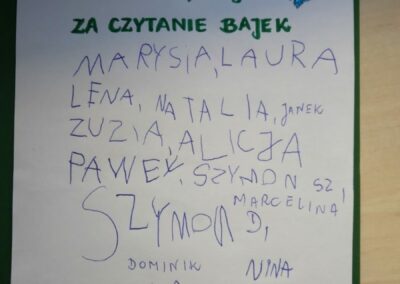 ZA CZYTANIE BAJEK
MARYSIA, LAURA
LENA, NATALIA, JANEK
ZUZIA, ALICJA
PAWEŁ, SZYMON SZ,
MARCELINA
SZYMON D,
DOMINIK NINA